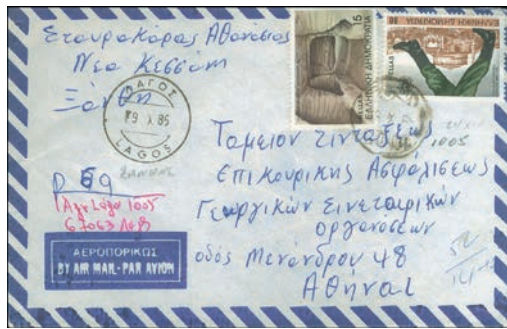 Σταυρακάρας Αθανάσιος
Νέα Κεσσάνη
Ξάνθη
ΛΑΓΟΣ
19 X 85
LAGOS
15
ΕΛΛΑΣ
ΕΛΛΗΝΙΚΗ ΔΗΜΟΚΡΑΤΙΑ
80
ΕΛΛΑΣ
ΕΛΛΗΝΙΚΗ ΔΗΜΟΚΡΑΤΙΑ
Ταμειον Σιντάξεως
Επικουρικης Ασφαλίσεως
Γεωργικών Σινεταιρικών
οργανόσεων
οδός Μενάνδρου 48
Αθήναι
1005
67063
ΑΕΡΟΠΟΡΙΚΩΣ
BY AIR MAIL - PAR AVION